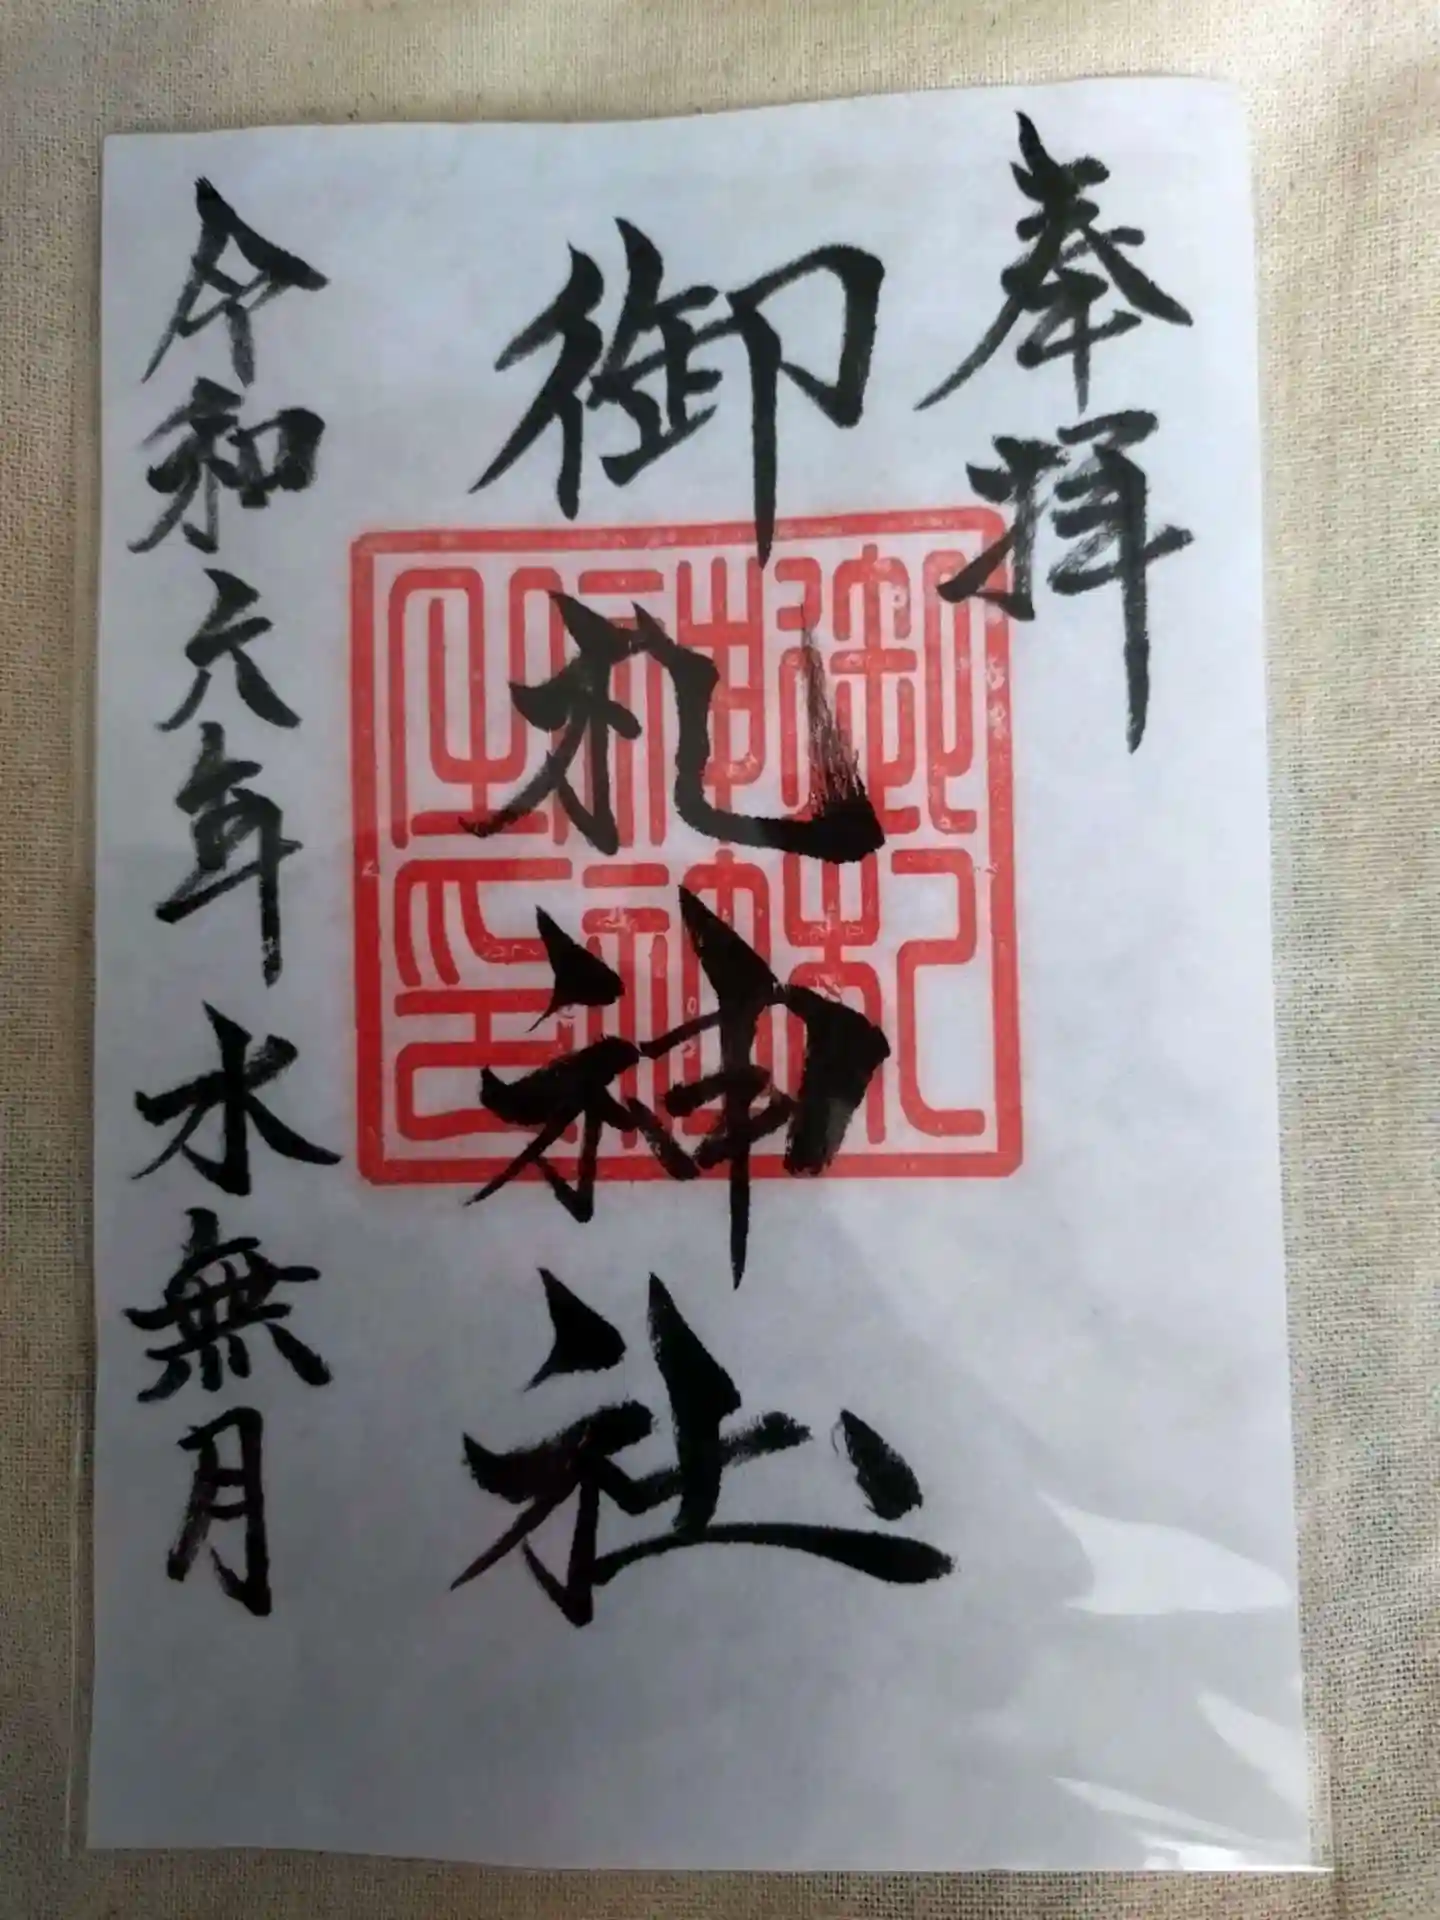 奉拝
御札神社
御札神社之印
令和六年水無月